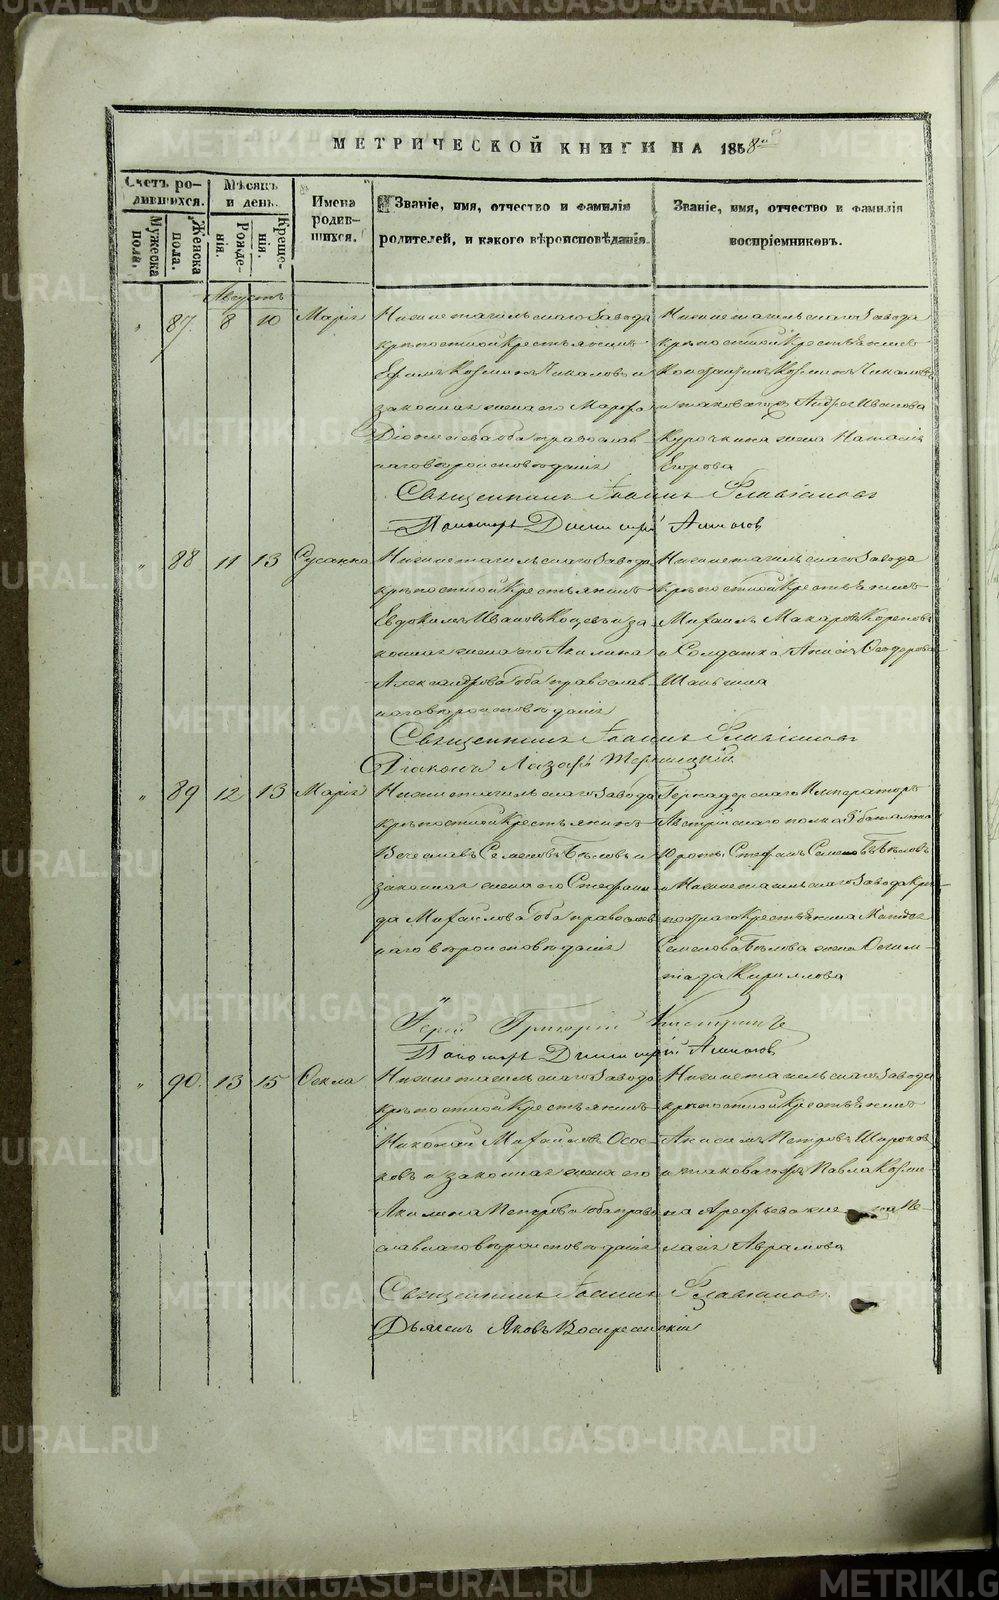 МЕТРИЧЕСКОЙ КНИГИ НА 1858й
Счетъ ро-
дившихся.
Мужеска
пола.
Женска
пола.
Мѣсяцъ
и день.
Рожде-
нія.
Креще-
нія.
Имена
родив-
шихся.
Званіе, имя, отчество и фамилія
родителей, и какого вѣроисповѣданія.
Званіе, имя, отчество и фамилія
воспріемниковъ.
Августъ
" 87. 8 10 Марія
Нижнетагильскаго Завода
крѣпостной Крестьянинъ
Ефимъ Козминъ Чикаловъ и
законная жена его Марфа
Діонисьева оба православ
наго вѣроисповѣданія
Нижнетагильскаго Завода
крѣпостной Крестьянинъ
Константинъ Козминъ Чикаловъ
и таковагожъ Андрея Иванова
Курочкина жена Наталія
Егорова
Священникъ Іоаннъ Флавіановъ
Пономарь Димитрій
" 88 11 13 Сусанна
Нижнетагильскаго Завода
крѣпостной Крестьянинъ
Евдокимъ Ивановъ и за
конная жена его Акилина
Александрова оба православ
наго вѣроисповѣданія
Нижнетагильскаго Завода
крѣпостной Крестьянинъ
Михаилъ Макаровъ
и Солдатка Анисія Ѳеодорова
Священникъ Іоаннъ Флавіановъ
Діаконъ Лазарь
" 89 12 13 Марія
Нижнетагильскаго Завода
крѣпостной Крестьянинъ
Вячеславъ Семеновъ Бѣловъ и
законная жена его Стефани
да Михайлова оба православ
наго вѣроисповѣданія
Гренадерскаго Императора
Австрійскаго полка баталіона
роты Стефанъ Семеновъ Бѣловъ
и Нижнетагильскаго Завода Крѣ-
постнаго Крестьянина
Семенова Бѣлова жена
Кириллова
Іерей Григорій
Пономарь Димитрій
" 90. 13 15 Ѳекла
Нижнетагильскаго Завода
крѣпостной Крестьянинъ
Николай Михайловъ Осос-
ковъ и законная жена его
Акилина Петрова оба право
славнаго вѣроисповѣданія
Нижнетагильскаго Завода
крѣпостной Крестьянинъ
Анисимъ Петровъ Широковъ
и таковагожъ Павла Козми-
на Арефьева жена
Аврамова
Священникъ Іоаннъ Флавіановъ
Дьяконъ Яковъ Воскресенскій
METRIKI.GASO-URAL.RU